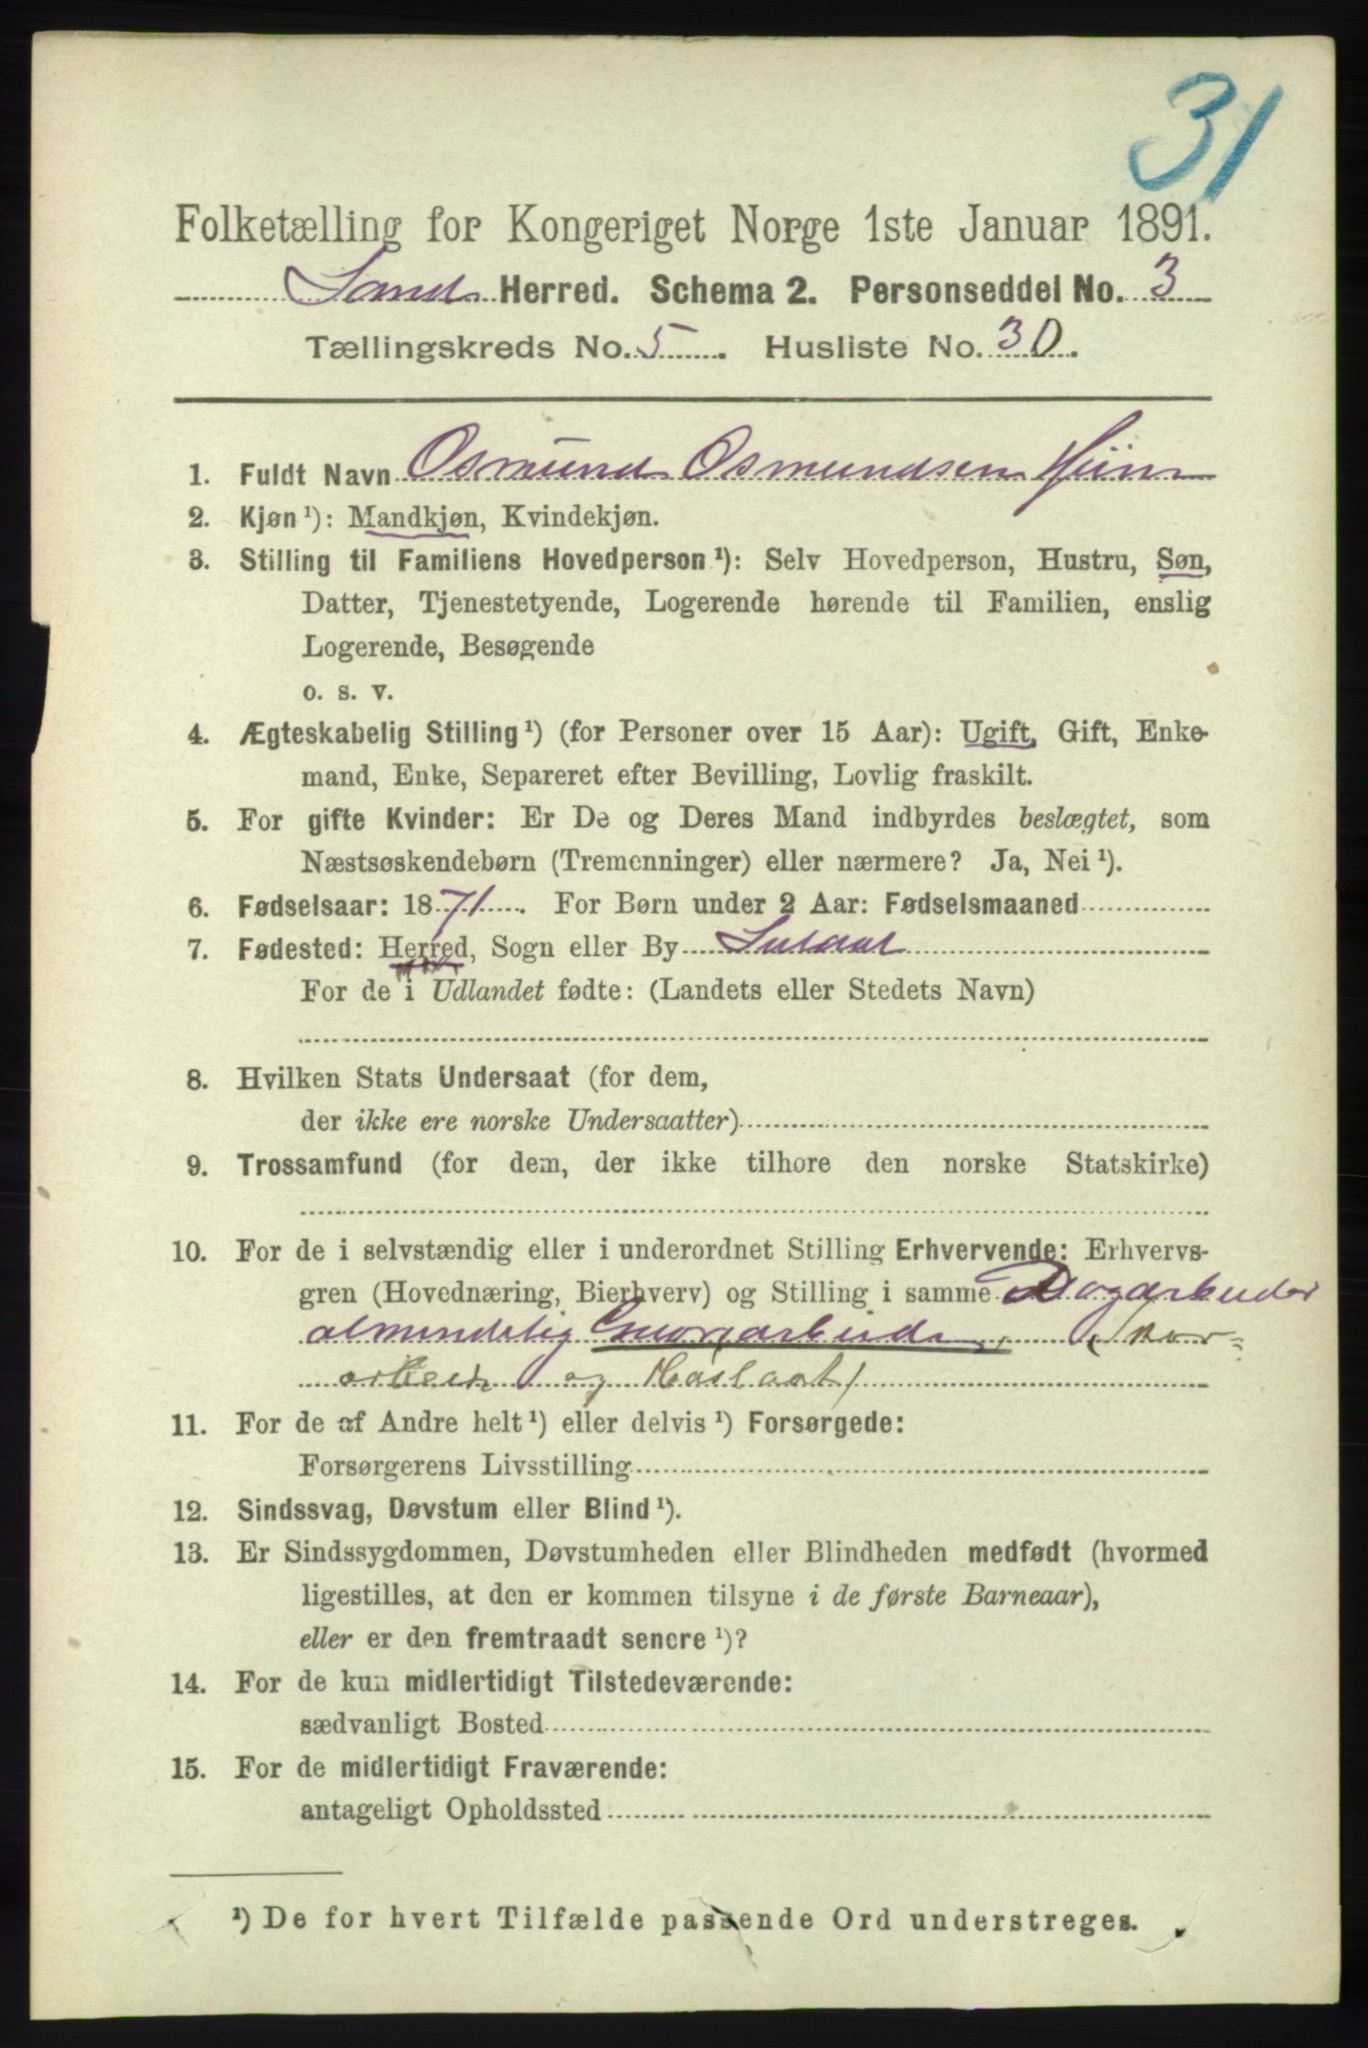 31
Folketælling for Kongeriget Norge 1ste Januar 1891.
Sand Herred. Schema 2. Personseddel No. 3
Tællingskreds No. 5. Husliste No. 30.
1. Fuldt Navn Osmund Osmundsen
2. Kjøn ¹): Mandkjøn, Kvindekjøn.
3. Stilling til Familiens Hovedperson ¹): Selv Hovedperson, Hustru, Søn,
Datter, Tjenestetyende, Logerende hørende til Familien, enslig
Logerende, Besøgende
o. s. v.
4. Ægteskabelig Stilling ¹) (for Personer over 15 Aar): Ugift, Gift, Enke-
mand, Enke, Separeret efter Bevilling, Lovlig fraskilt.
5. For gifte Kvinder: Er De og Deres Mand indbyrdes beslægtet, som
Næstsøskendebørn (Tremenninger) eller nærmere? Ja, Nei ¹).
6. Fødselsaar: 1871. For Børn under 2 Aar: Fødselsmaaned
7. Fødested: Herred, Sogn eller By Suldal
For de i Udlandet fødte: (Landets eller Stedets Navn)
8. Hvilken Stats Undersaat (for dem,
der ikke ere norske Undersaatter)
9. Trossamfund (for dem, der ikke tilhøre den norske Statskirke)
10. For de i selvstændig eller i underordnet Stilling Erhvervende: Erhvervs-
gren (Hovednæring, Bierhverv) og Stilling i samme Dagarbeider
almindelig
og
11. For de af Andre helt ¹) eller delvis ¹) Forsørgede:
Forsørgerens Livsstilling
12. Sindssvag, Døvstum eller Blind ¹).
13. Er Sindssygdommen, Døvstumheden eller Blindheden medfødt (hvormed
ligestilles, at den er kommen tilsyne i de første Barneaar),
eller er den fremtraadt senere ¹)?
14. For de kun midlertidigt Tilstedeværende:
sædvanligt Bosted
15. For de midlertidigt Fraværende:
antageligt Opholdssted
¹) De for hvert Tilfælde passende Ord understreges.